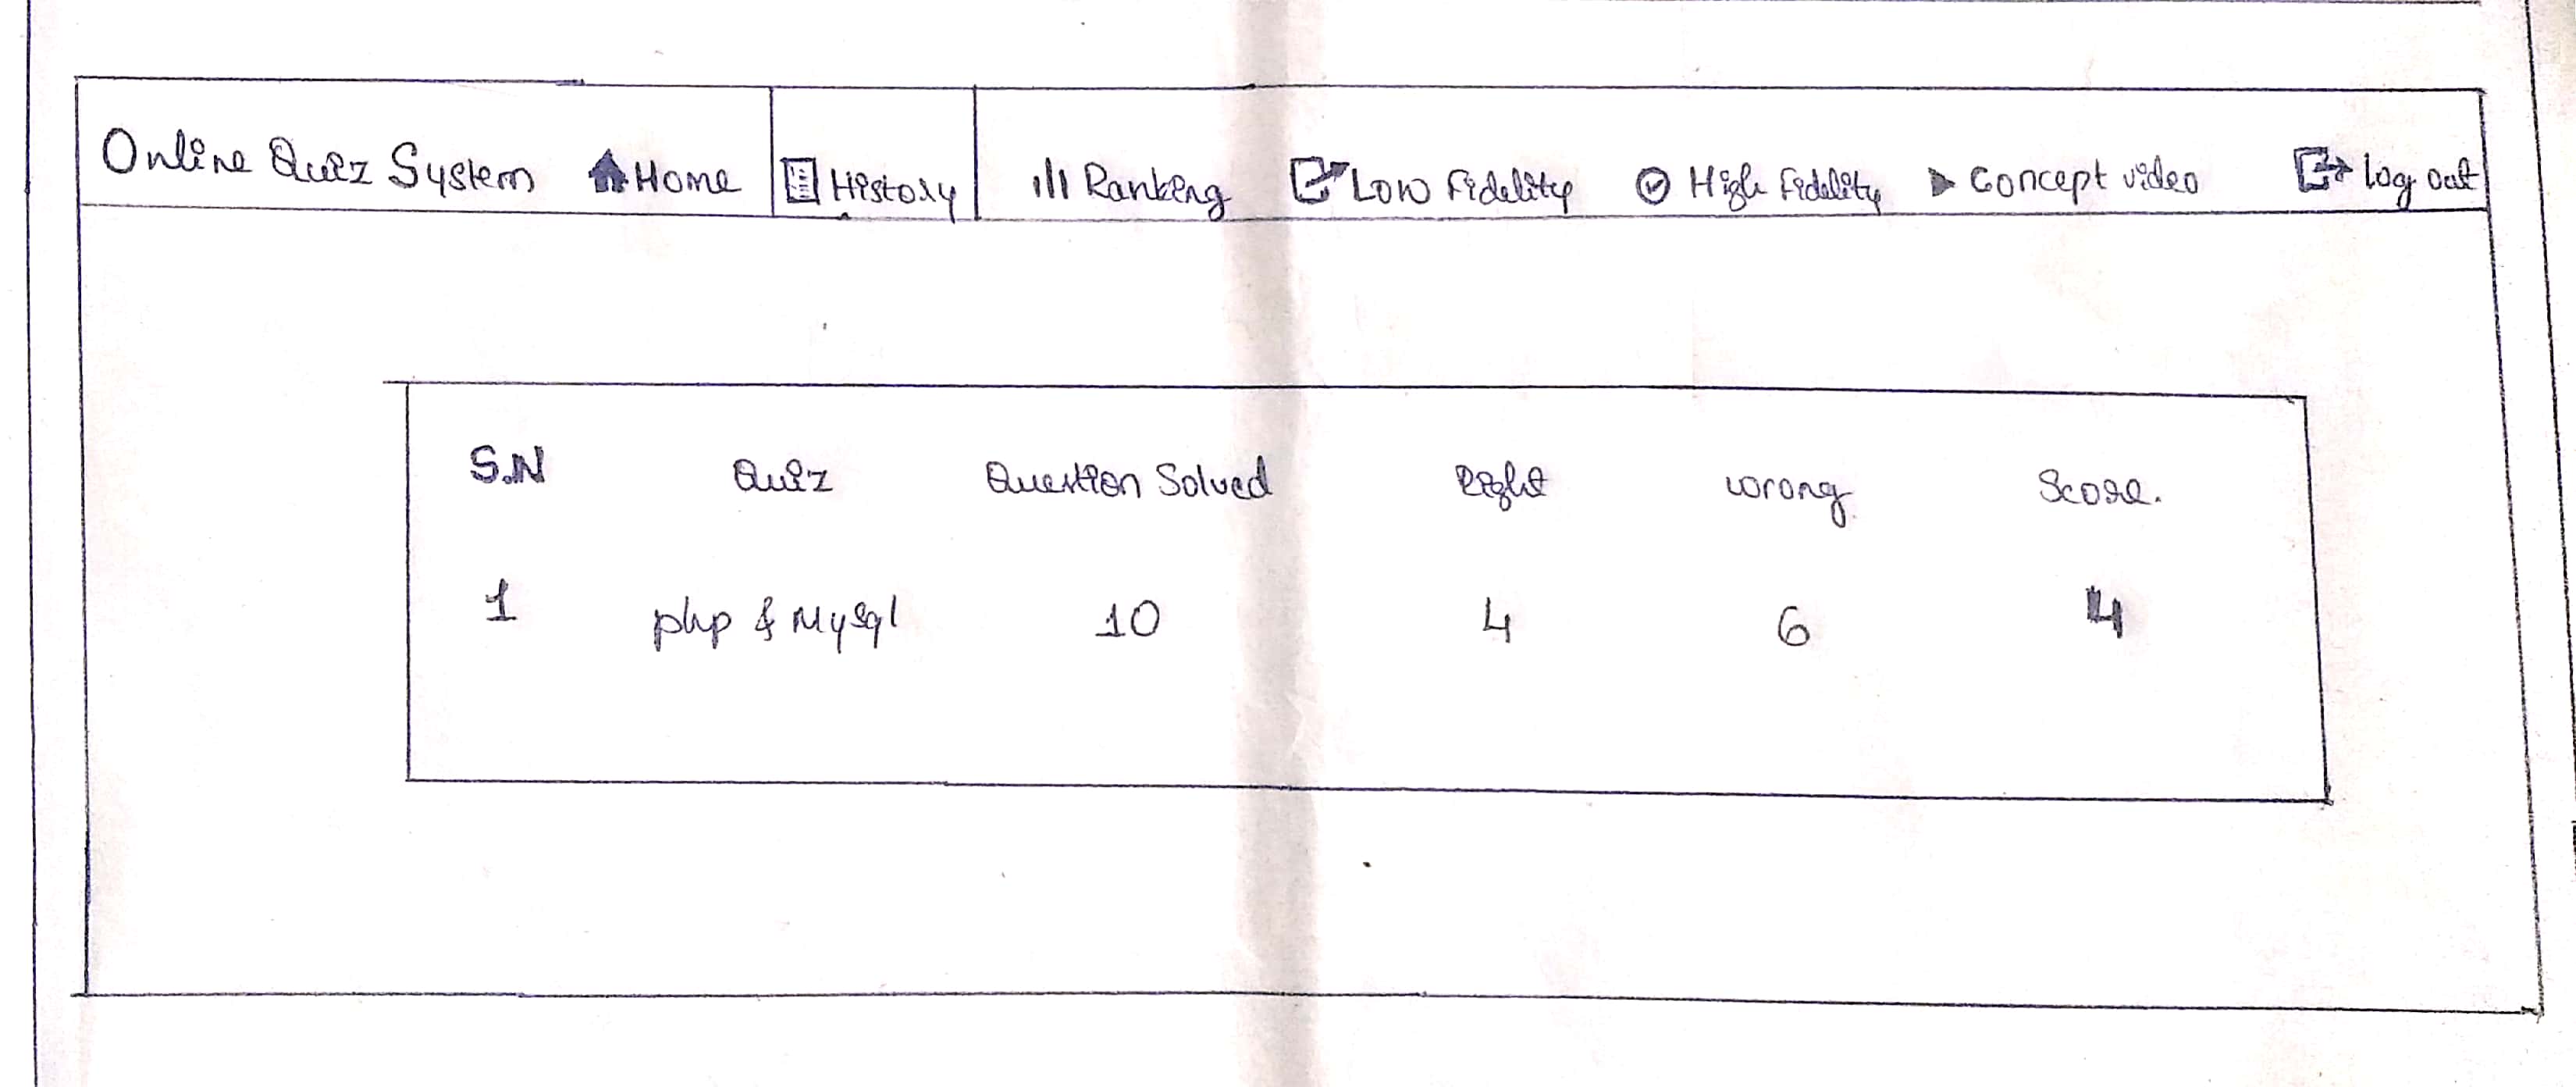 Online Quiz System Home History Ranking Low Fidelity High Fidelity Concept video Log out
S.N Quiz Question Solved Right wrong Score.
1 php & Mysql 10 4 6 4